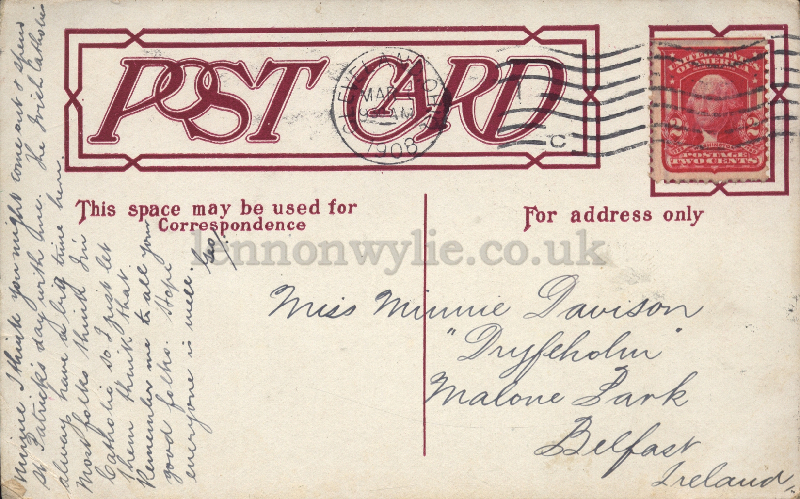 POST CARD
CLEVELAND, OHIO
MAR
9 - AM
1908
C
UNITED STATES
OF AMERICA
2 2
POSTAGE
TWO CENTS
This space may be used for
Correspondence
For address only
lennonwylie.co.uk
Minnie I think you might come out & spend
St Patricks day with me. The Irish Catholic
always have a big time here.
Most folks think I'm
Catholic so I just let
them think that.
Remember me to all your
good folks. Hope
everyone is well.
Miss Minnie Davison
"Dryfeholm"
Malone Park
Belfast
Ireland.